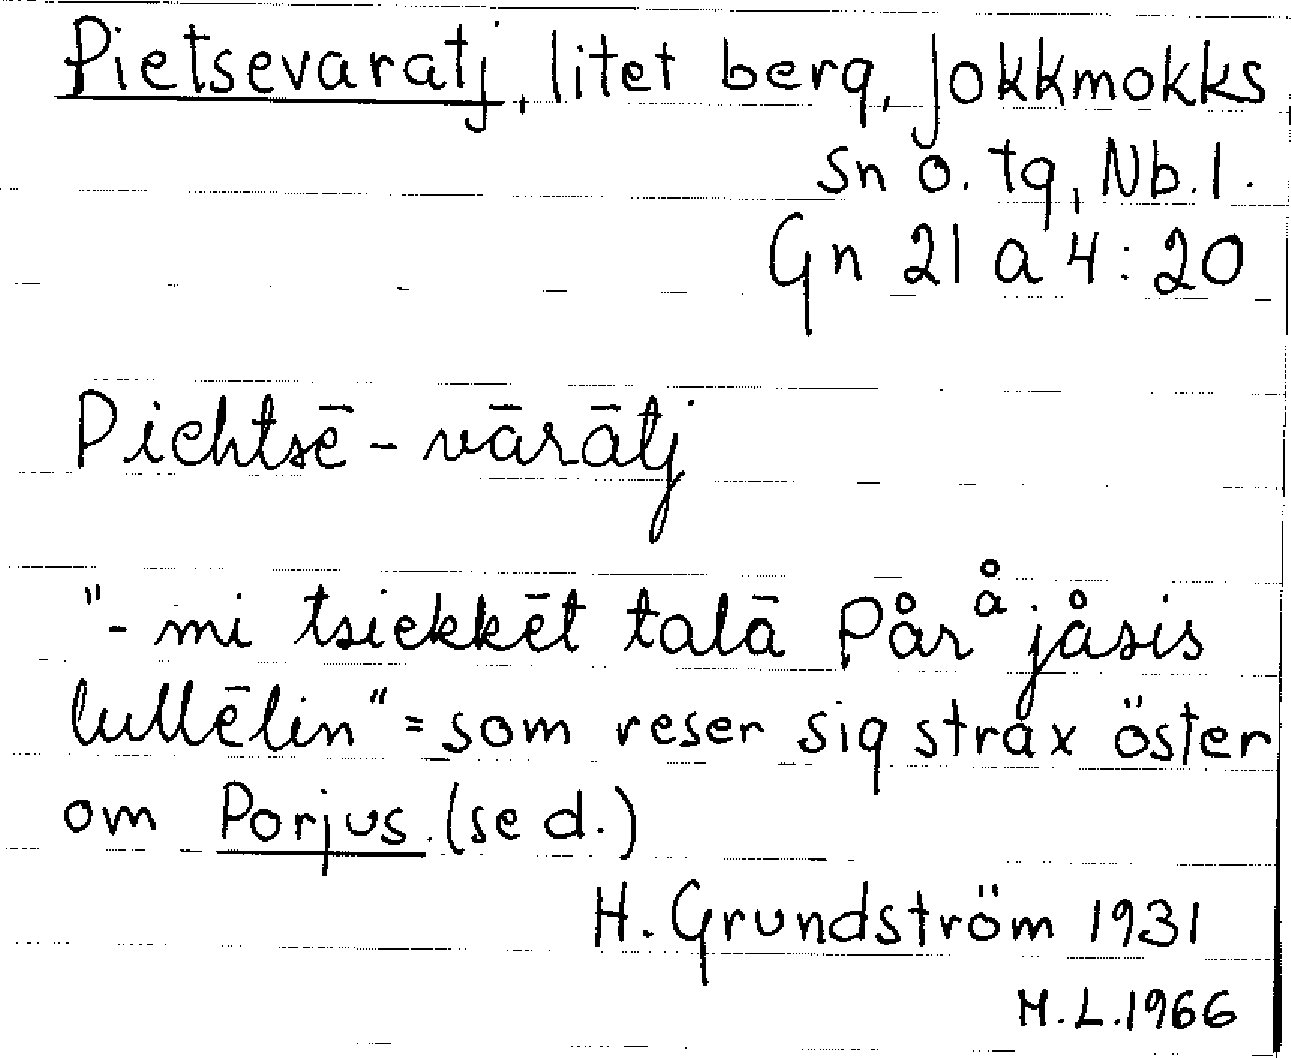 Pietsevaratj, litet berg, Jokkmokks
sn o. tg, Nb. l.
Gn 21 a 4:20
Pichtsē-vārātj
"- mi tsiekkēt talā Påråjåsis
lullēlin" = som reser sig strax öster
om Porjus. (se d.)
H. Grundström 1931
M. L. 1966